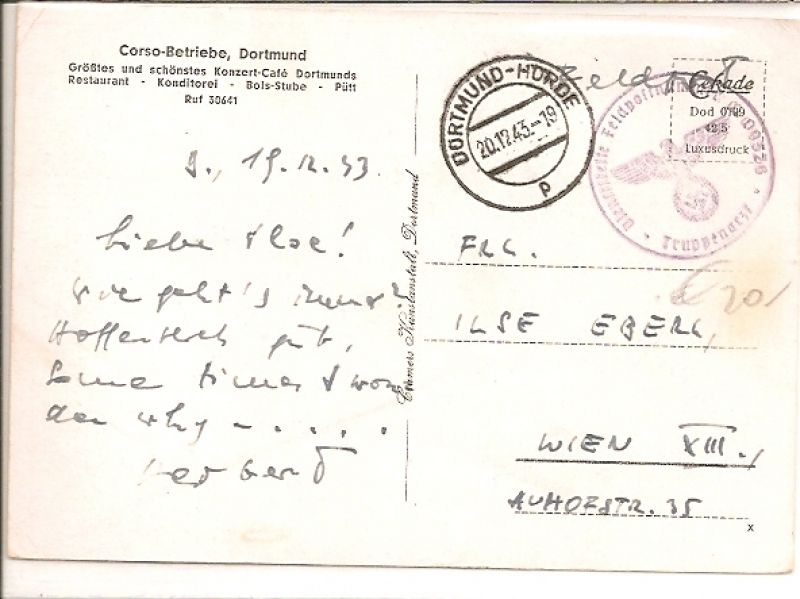 Corso-Betriebe, Dortmund
Größtes und schönstes Konzert-Café Dortmunds
Restaurant - Konditorei - Bols-Stube - Pütt
Ruf 30641
D., 19.12.43.
Liebe Ilse!
Wie geht's immer?
Hoffentlich gut,
Some times I won
der why - . . . . .
Herbert
Cramers Kunstanstalt, Dortmund
DORTMUND-HÖRDE
20.12.43.-19
p
Feldpost
Gekade
Dod 0199
42/5
Luxusdruck
Dienststelle Feldpostnummer 00326
Truppenarzt
FRL.
ILSE EBERL,
WIEN XIII.,
AUHOFSTR. 35
20/
x